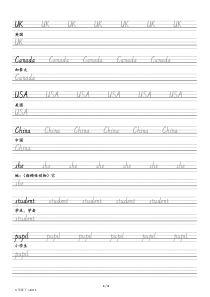 UK UK UK UK UK UK UK
英国
UK
Canada Canada Canada Canada Canada
加拿大
Canada
USA USA USA USA USA USA
美国
USA
China China China China China China China
中国
China
she she she she she she she
她；（指雌性动物）它
she
student student student student student
学生，学者
student
pupil pupil pupil pupil pupil pupil
小学生
pupil